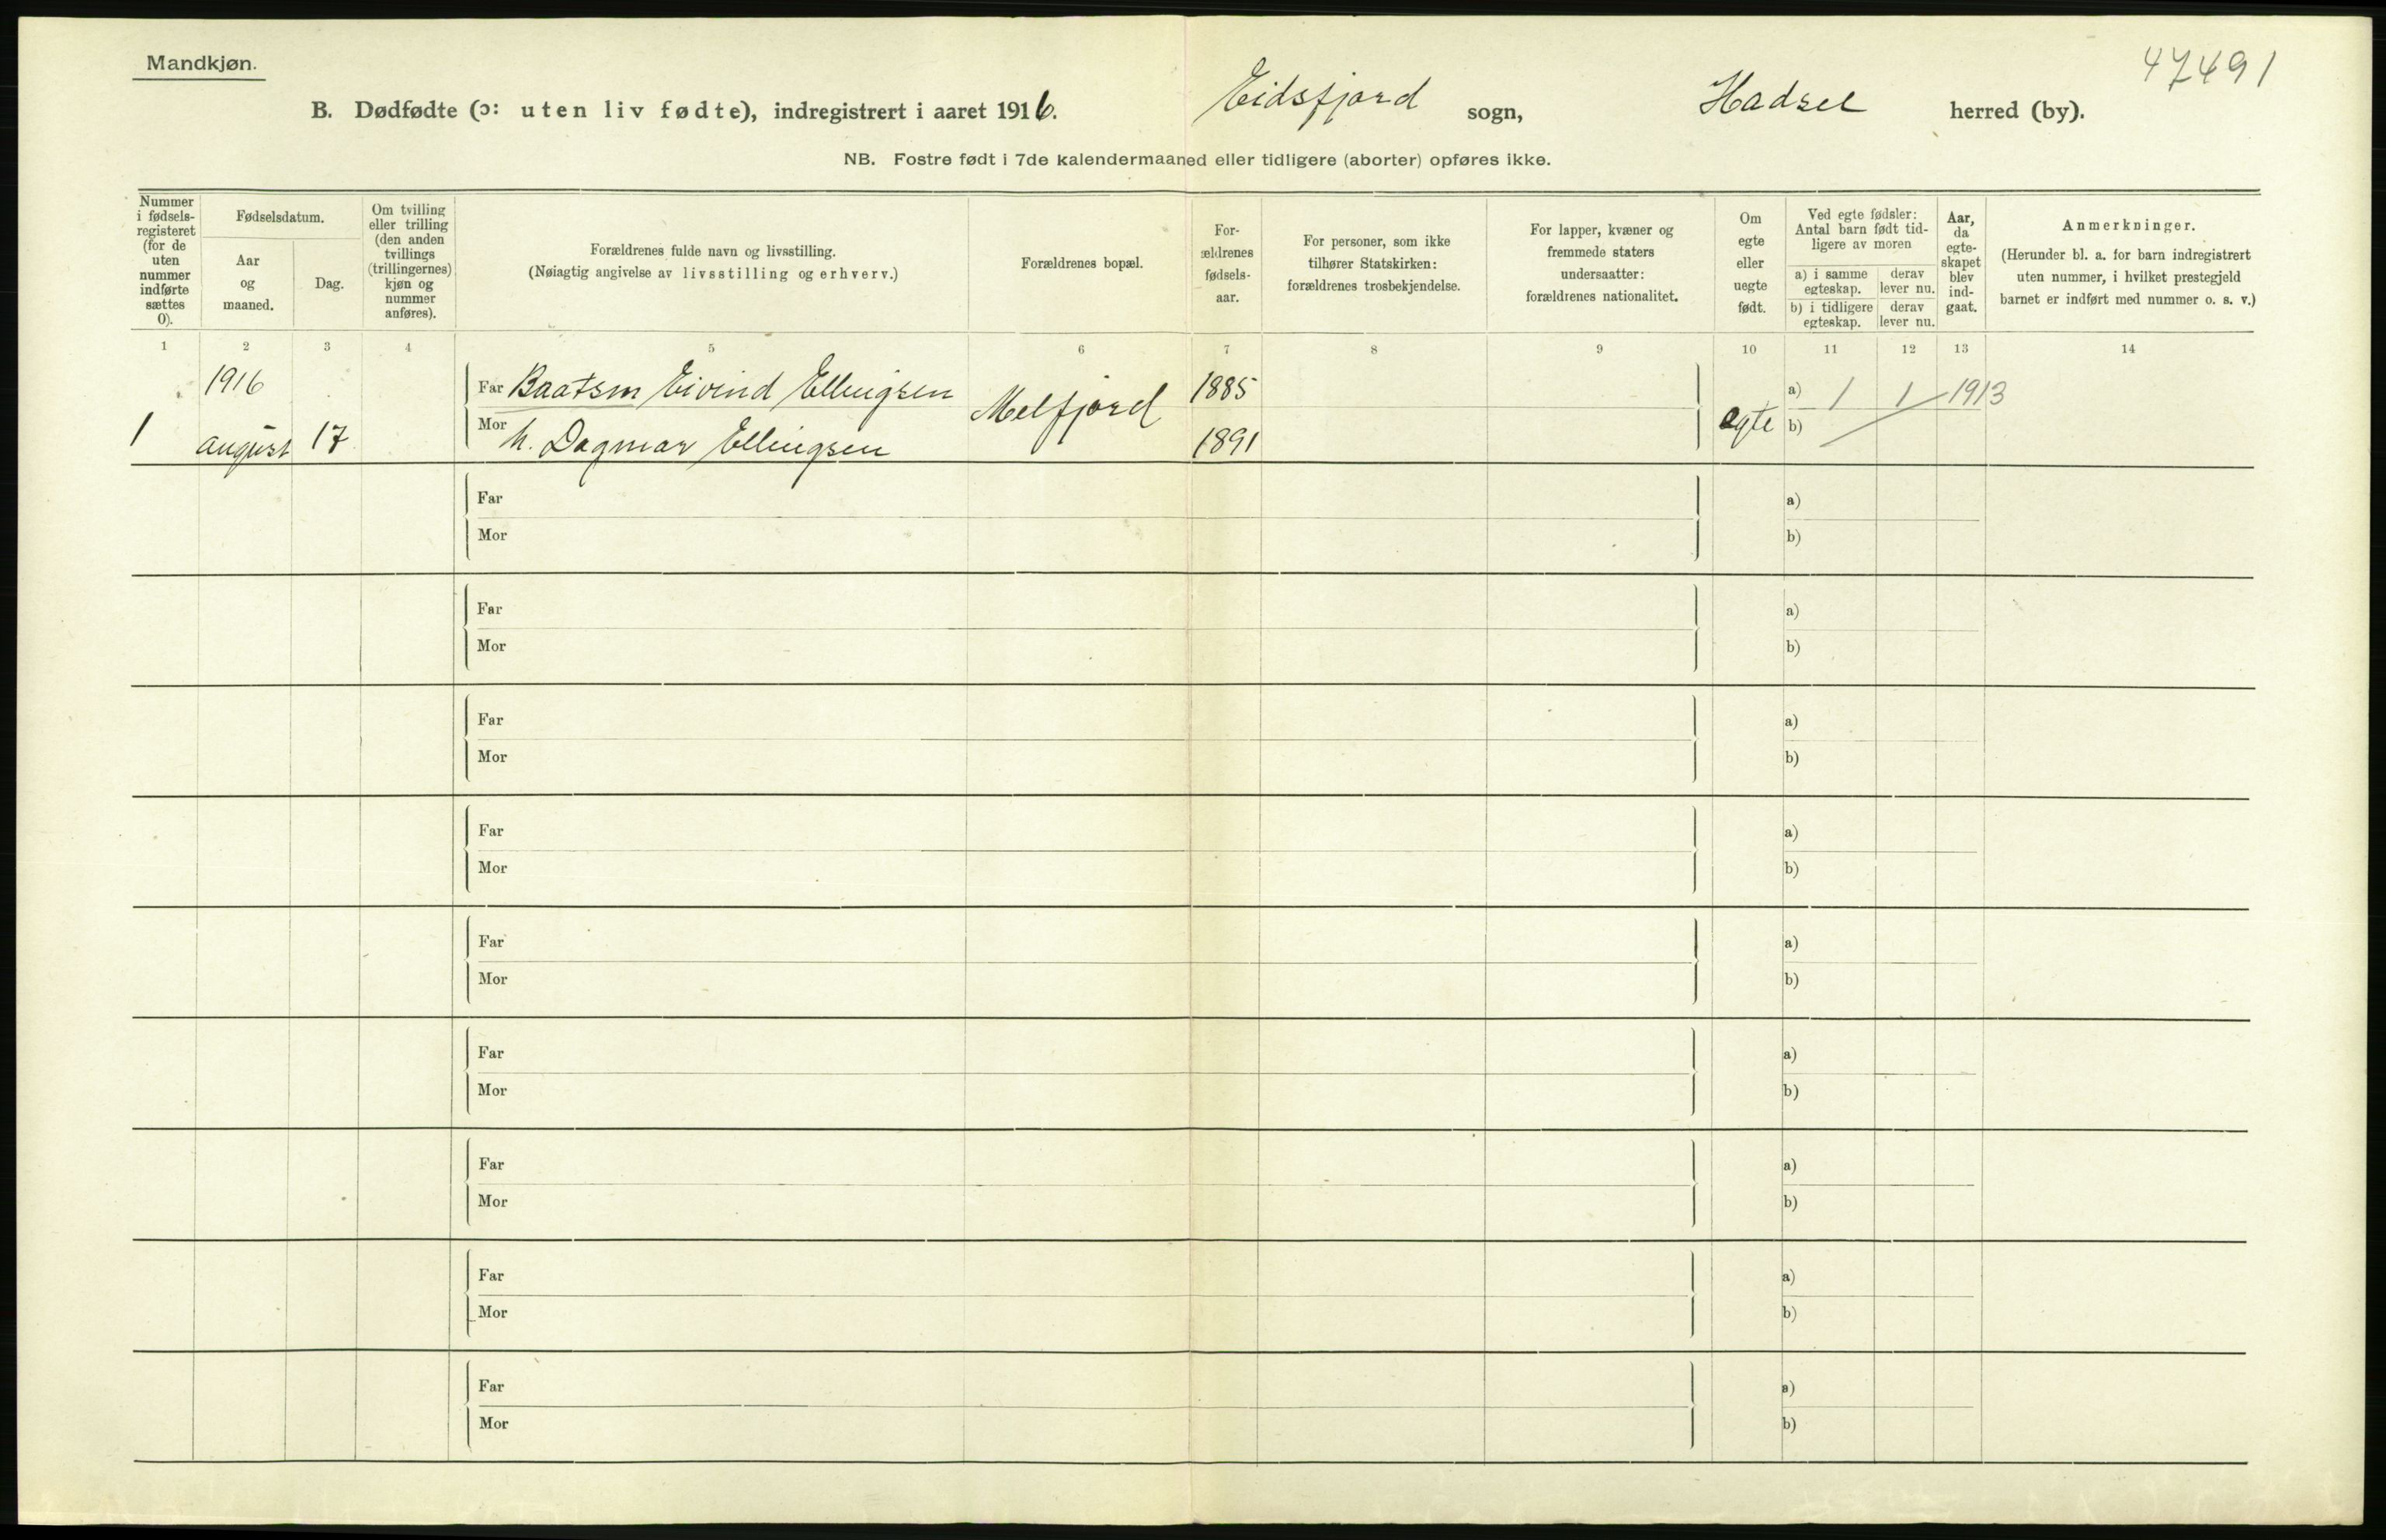 Mandkjøn.
47491
B. Dødfødte (ɔ: uten liv fødte), indregistrert i aaret 1916. Eidsfjord sogn, Hadsel herred (by).
NB. Fostre født i 7de kalendermaaned eller tidligere (aborter) opføres ikke.
Nummer
i fødsels-
registeret
(for de
uten
nummer
indførte
sættes
0).
Fødselsdatum.
Aar
og
maaned.
Dag.
Om tvilling
eller trilling
(den anden
tvillings
(trillingernes)
kjøn og
nummer
anføres).
Forældrenes fulde navn og livsstilling.
(Nøiagtig angivelse av livsstilling og erhverv.)
Forældrenes bopæl.
For-
ældrenes
fødsels-
aar.
For personer, som ikke
tilhører Statskirken:
forældrenes trosbekjendelse.
For lapper, kvæner og
fremmede staters
undersaatter:
forældrenes nationalitet.
Om
egte
eller
uegte
født.
Ved egte fødsler:
Antal barn født tid-
ligere av moren
a) i samme
egteskap.
derav
lever nu.
b) i tidligere
egteskap.
derav
lever nu.
Aar,
da
egte-
skapet
blev
ind-
gaat.
Anmerkninger.
(Herunder bl. a. for barn indregistrert
uten nummer, i hvilket prestegjeld
barnet er indført med nummer o. s. v.)
1 2 3 4 5 6 7 8 9 10 11 12 13 14
1916 Far Baatsm Eivind Ellingsen 1885 a) 1 1 1913
Melfjord egte
1 august 17 Mor h. Dagmar Ellingsen 1891 b)
Far a)
Mor b)
Far a)
Mor b)
Far a)
Mor b)
Far a)
Mor b)
Far a)
Mor b)
Far a)
Mor b)
Far a)
Mor b)
Far a)
Mor b)
Far a)
Mor b)